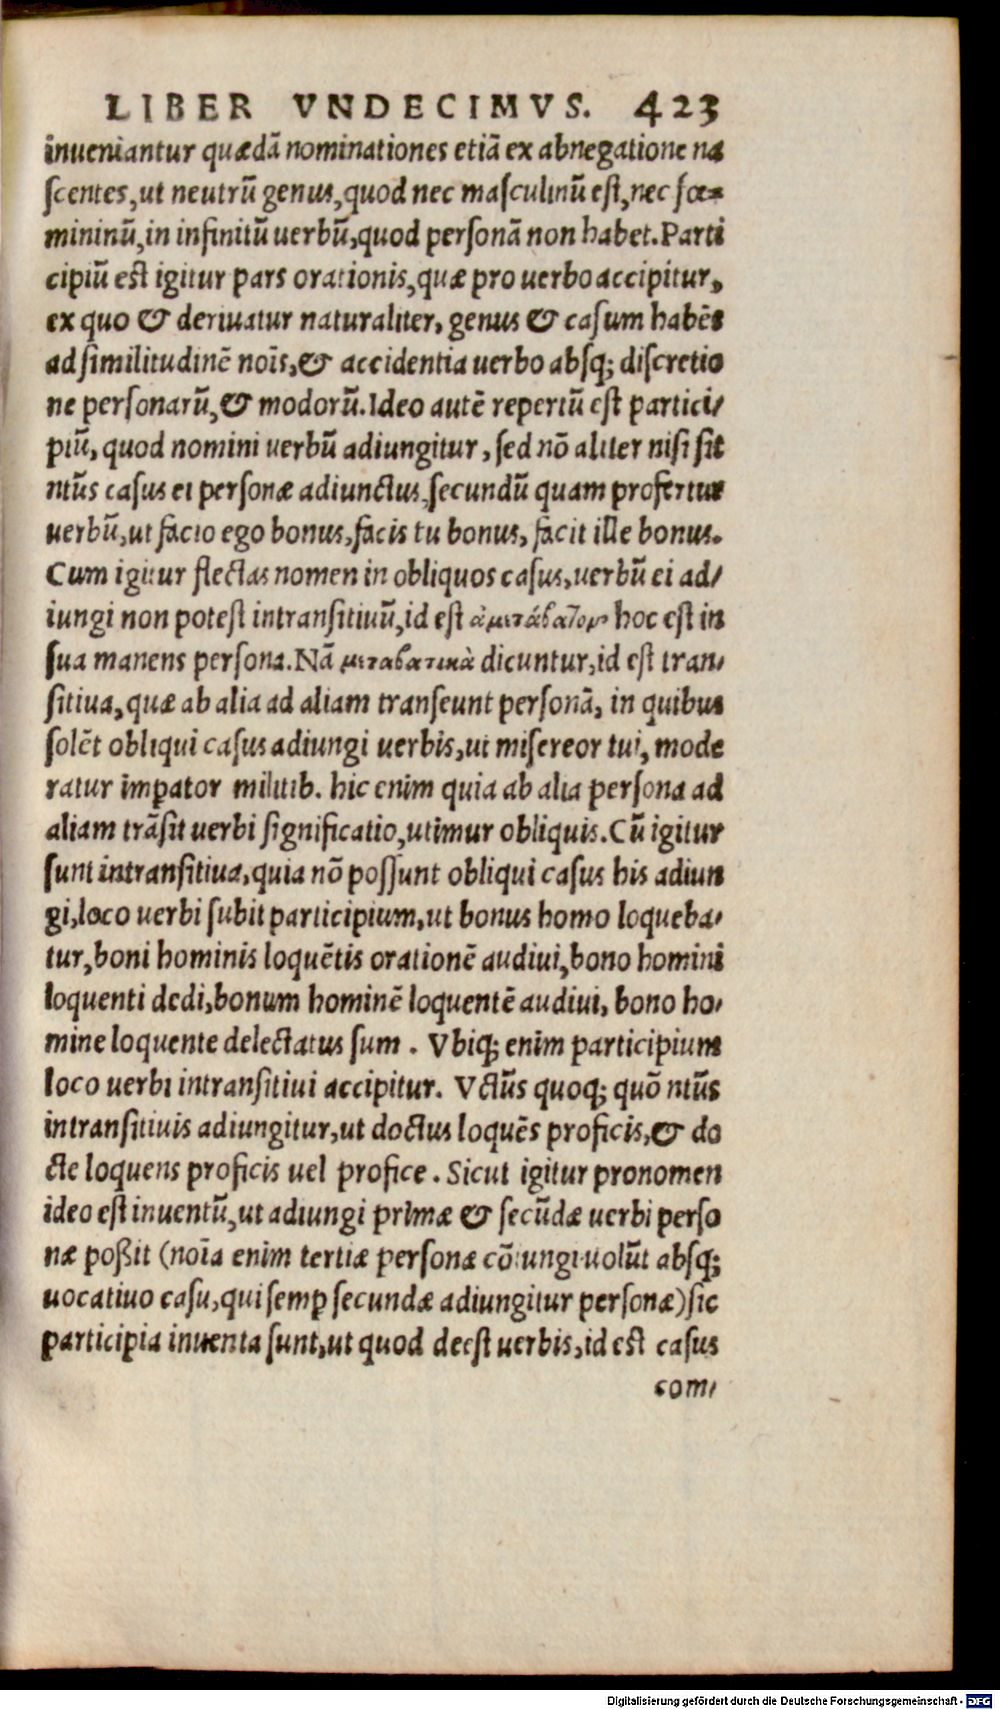 LIBER VNDECIMVS. 423
inueniantur quædā nominationes etiā ex abnegatione na
scentes, ut neutrū genus, quod nec masculinū est, nec fœ-
mininū, in infinitū uerbū, quod personā non habet. Parti
cipiū est igitur pars orationis, quæ pro uerbo accipitur,
ex quo & deriuatur naturaliter, genus & casum habēs
ad similitudinē noīs, & accidentia uerbo absq; discretio
ne personarū, & modorū. Ideo autē repertū est partici/
piū, quod nomini uerbū adiungitur, sed nō aliter nisi sit
ntūs casus ei personæ adiunctus, secundū quam profertur
uerbū, ut facio ego bonus, facis tu bonus, facit ille bonus.
Cum igitur flectas nomen in obliquos casus, uerbū ei ad/
iungi non potest intransitiuū, id est ἀμετάβατον hoc est in
sua manens persona. Nā μεταβατικὰ dicuntur, id est tran/
sitiua, quæ ab alia ad aliam transeunt personā, in quibus
solēt obliqui casus adiungi uerbis, ut misereor tui, mode
ratur imp̄ator militib. hic enim quia ab alia persona ad
aliam trāsit uerbi significatio, utimur obliquis. Cū igitur
sunt intransitiua, quia nō possunt obliqui casus his adiun
gi, loco uerbi subit participium, ut bonus homo loqueba/
tur, boni hominis loquētis orationē audiui, bono homini
loquenti dedi, bonum hominē loquentē audiui, bono ho/
mine loquente delectatus sum . Vbiq; enim participium
loco uerbi intransitiui accipitur. Vctūs quoq; quō ntūs
intransitiuis adiungitur, ut doctus loquēs proficis, & do
cte loquens proficis uel profice . Sicut igitur pronomen
ideo est inuentū, ut adiungi primæ & secūdæ uerbi perso
næ poßit (noīa enim tertiæ personæ cōiungi uolūt absq;
uocatiuo casu, qui semp̄ secundæ adiungitur personæ) sic
participia inuenta sunt, ut quod deest uerbis, id est casus
com/
Digitalisierung gefördert durch die Deutsche Forschungsgemeinschaft - DFG